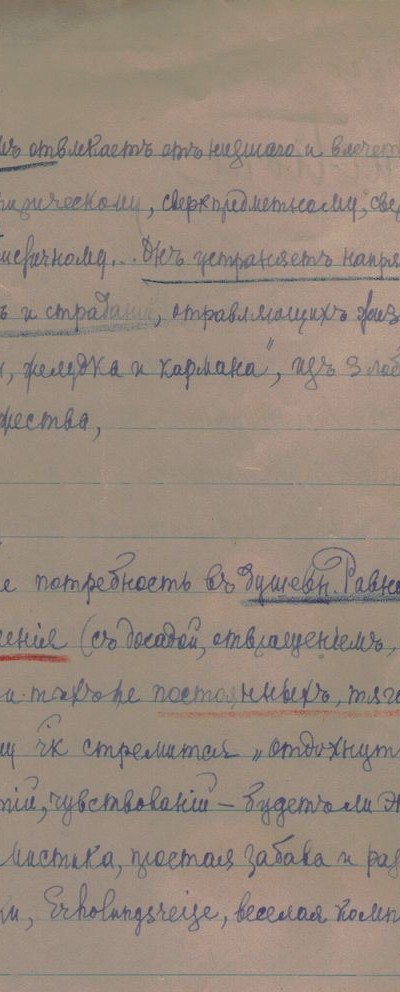 отвлекаетъ отъ низшаго и влечет
физическому, сверхпредметному, све
Онъ устраняетъ напря
ъ и страданій, отравляющихъ жиз
, желудка и кармана", изъ злоб
жества,
е потребность въ душевн. Равно
ения (съ досадой, отвращеніемъ,
и также постоянныхъ, тяго
му чк стремится „отдохнут
тій, чувствованій – будетъ ли э
мистика, простая забава и раз
ки, Erholungsreize, веселая комп